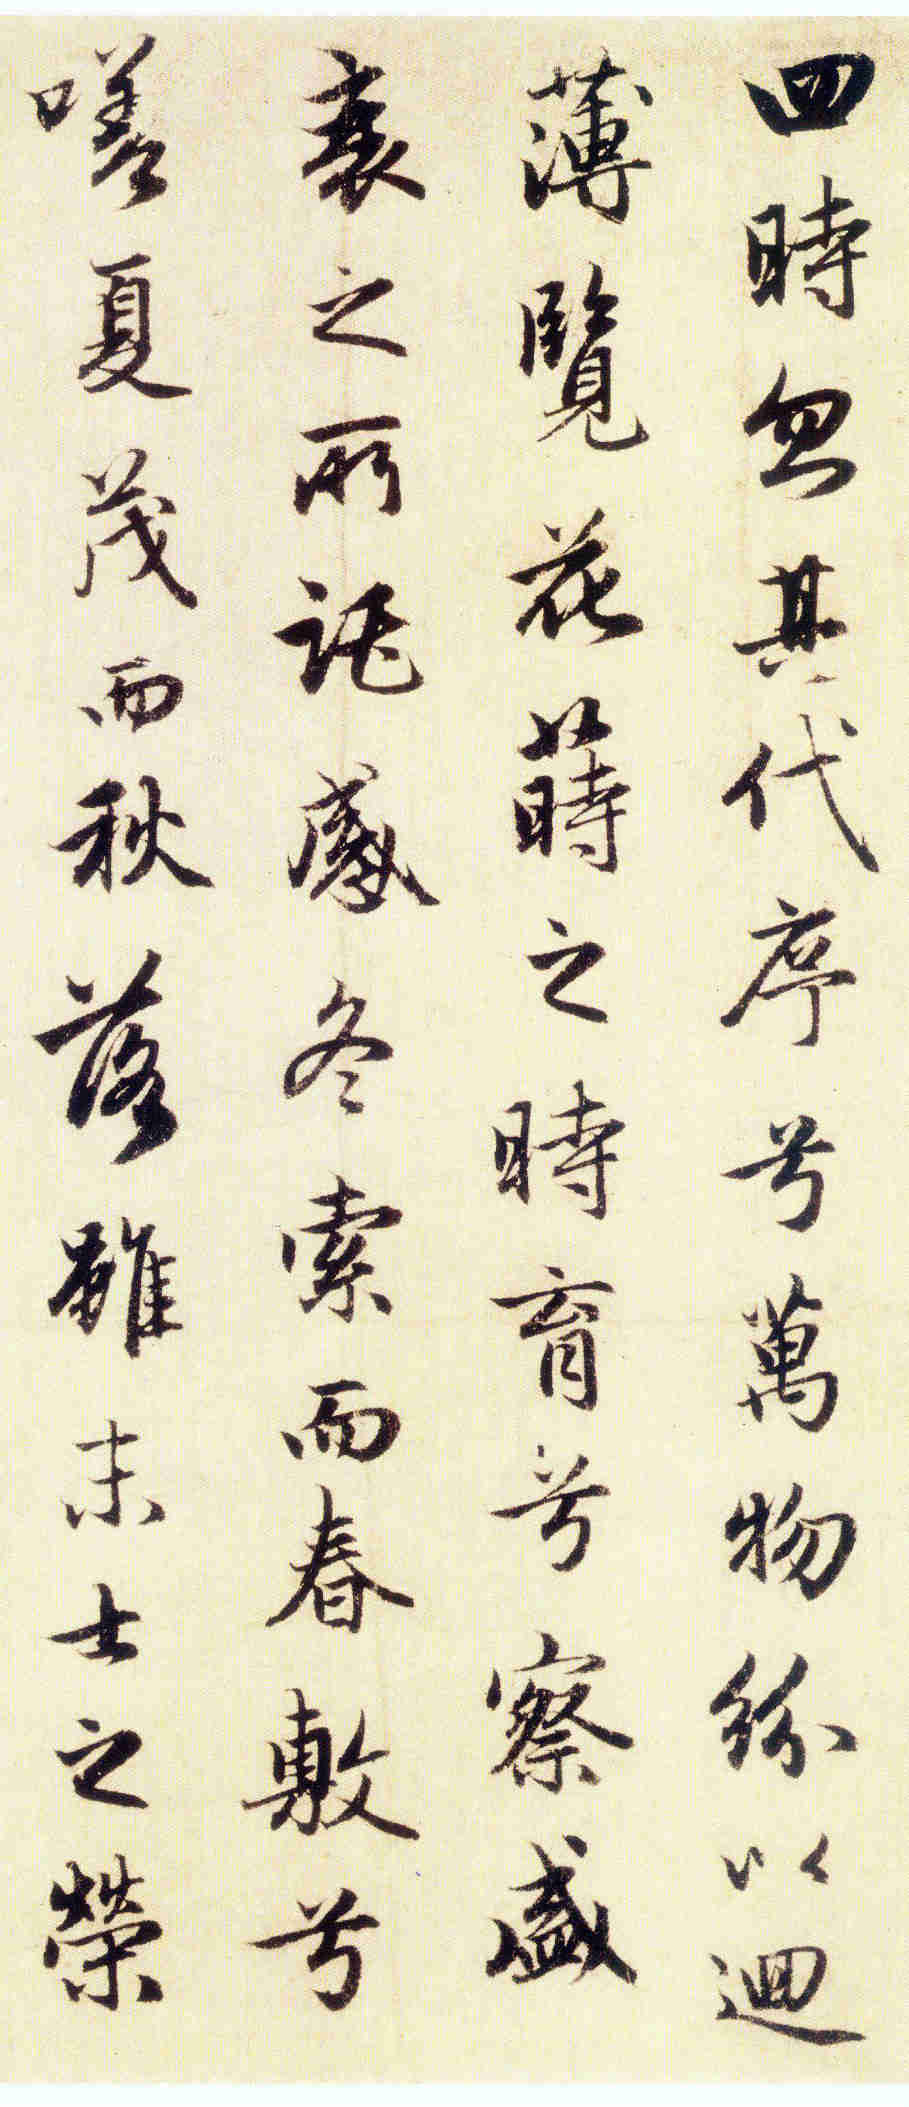 四時忽其代序兮萬物紛以迴
薄覽花蒔之時育兮察盛
衰之所託感冬索而春敷兮
嗟夏茂而秋落雖末士之榮